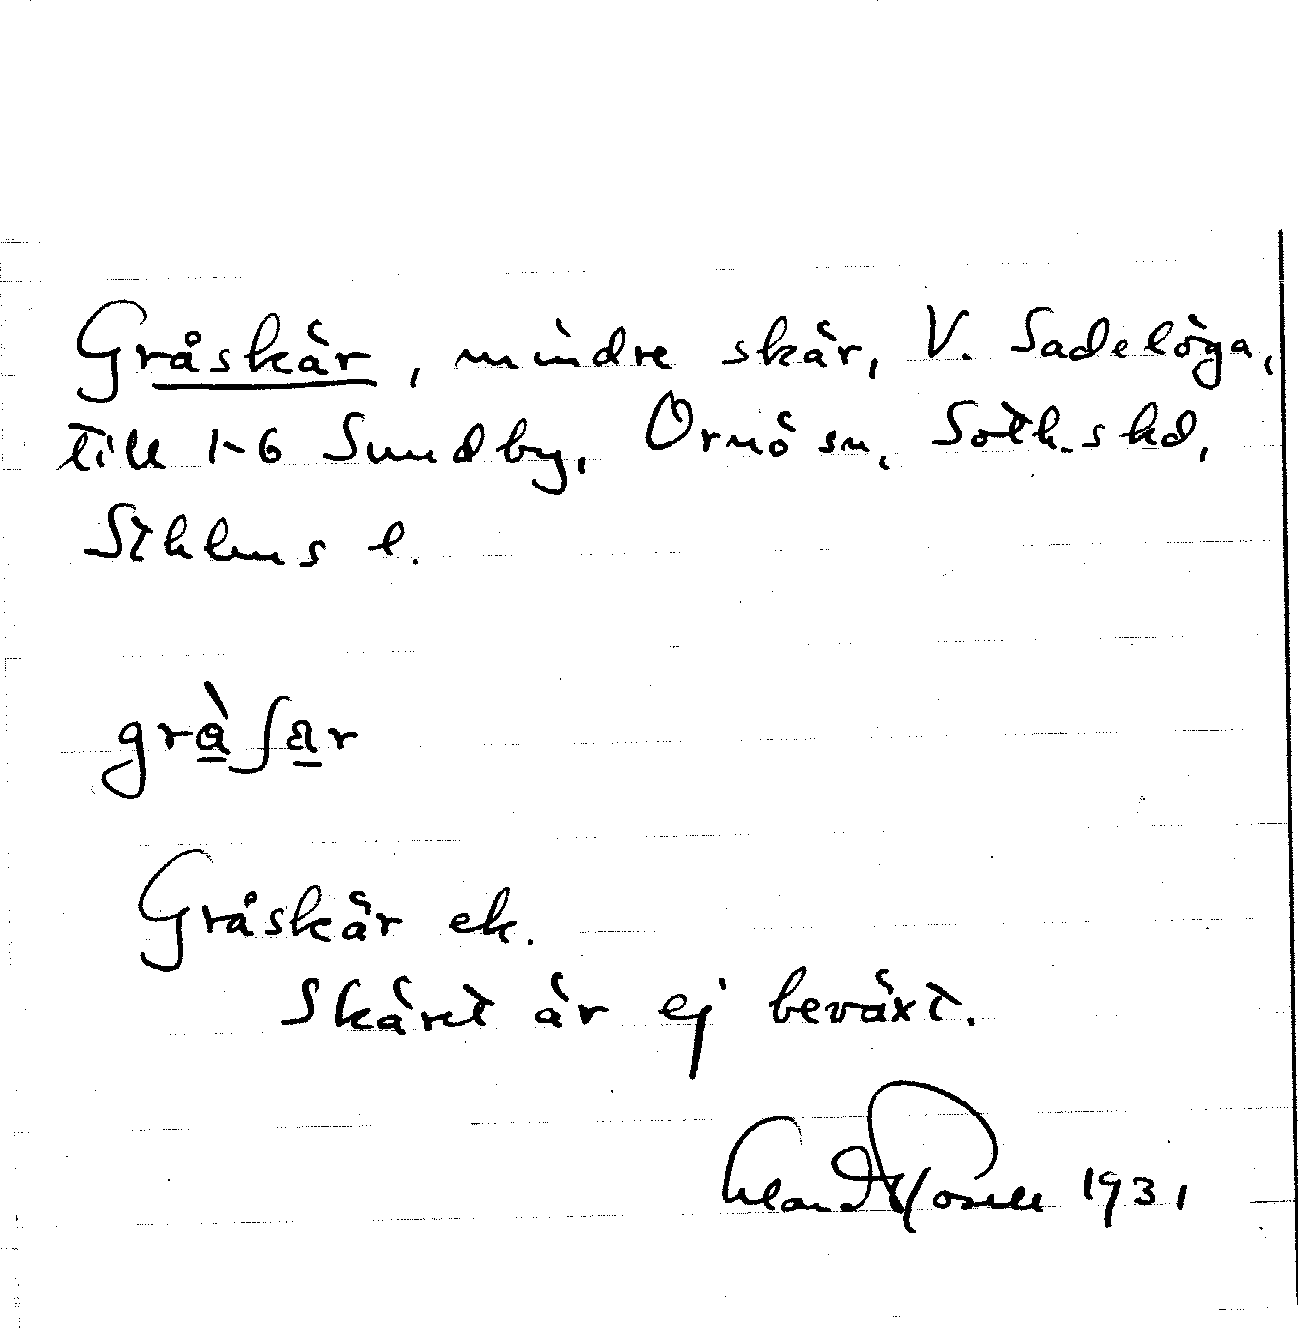 Gråskär, mindre skär, V. Sadelöga,
till 1-6 Sundby, Ornö sn, Soth.s hd,
Sthlms l.
gràʃar
Gråskär ek.
Skäret är ej beväxt.
1931